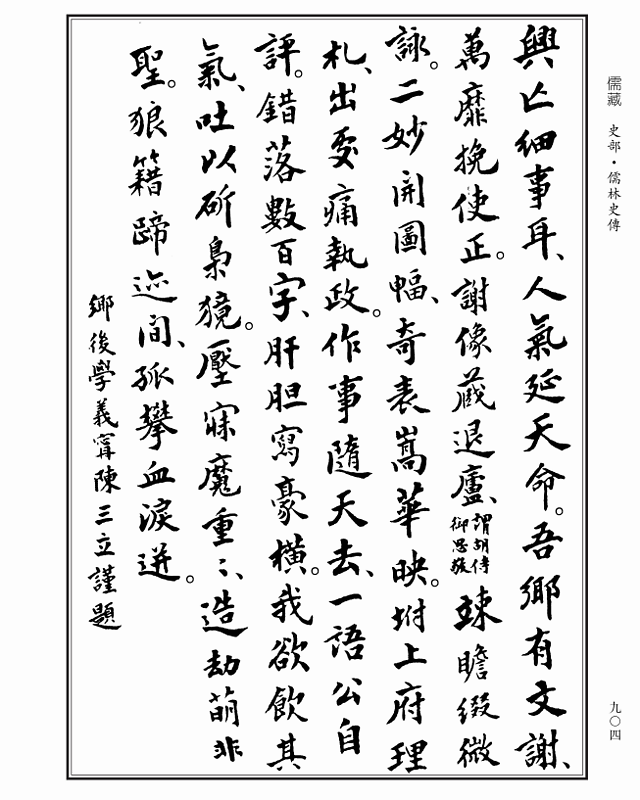 儒藏 史部·儒林史傳
興亡細事耳、人氣延天命。吾鄉有文謝、
萬靡挽使正。謝像蔵退廬、謂胡侍御思敬竦瞻綴微
詠。二妙開圖幅、奇表嵩華映。坿上府理
札、出處痛執政。作事隨天去、一語公自
評。錯落數百字、肝胆寫豪橫。我欲飲其
氣、吐以斫梟獍。壓寐魔重〻、造劫萌非
聖。狼籍蹄迹間、孤攀血淚迸。
鄉後學義甯陳三立謹題
九〇四